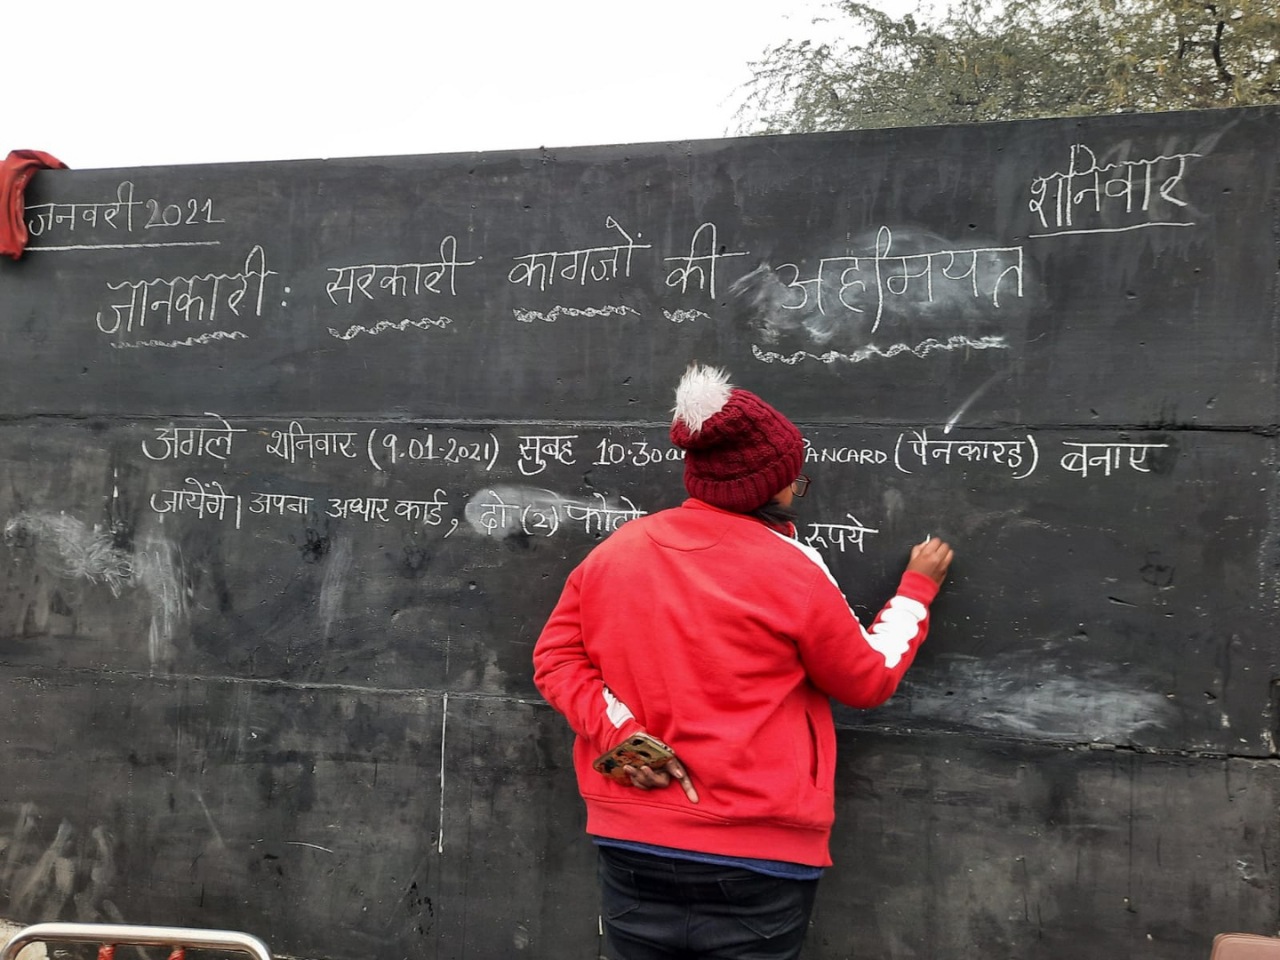 जनवरी 2021
शनिवार
जानकारी: सरकारी कागजों की अहीमयत
अगले शनिवार (9.01.2021) सुबह 10.30a PANCARD (पैनकारड) बनाए
जायेंगे। अपना अधार कार्ड, दो (2) फोटो रूपये